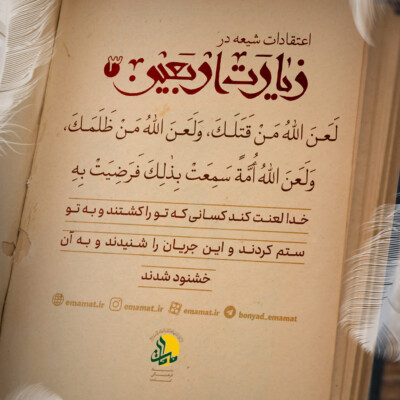 اعتقادات شیعه در
زیارت اربعین ۳
لَعَنَ اللهُ مَنْ قَتَلَكَ، وَلَعَنَ اللهُ مَنْ ظَلَمَكَ،
وَلَعَنَ اللهُ أُمَّةً سَمِعَتْ بِذٰلِكَ فَرَضِيَتْ بِهِ
خدا لعنت کند کسانی که تو را کشتند و به تو
ستم کردند و این جریان را شنیدند و به آن
خشنود شدند
emamat.ir emamat.ir emamat.ir bonyad_emamat